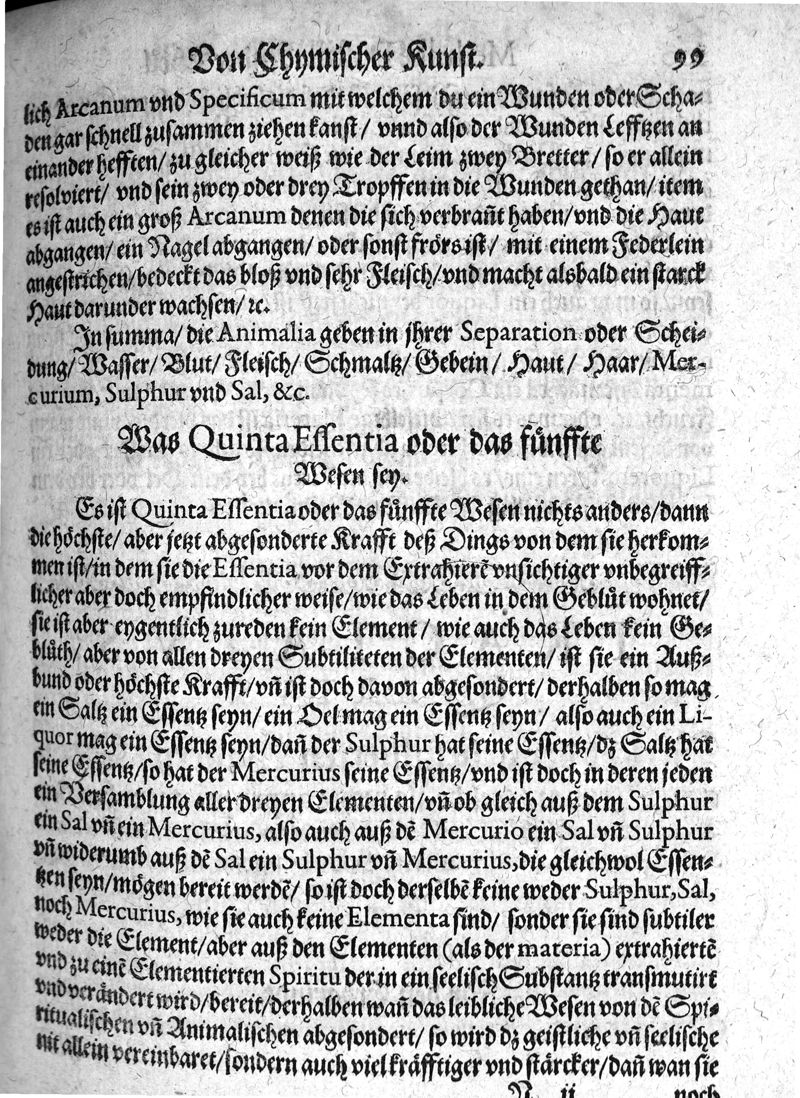 Von Chymischer Kunst. 99
lich Arcanum vnd Specificum mit welchem du ein Wunden oder Scha⸗
den gar schnell zusammen ziehen kanst/ vnnd also der Wunden Lefftzen an
einander hefften/ zu gleicher weiß wie der Leim zwey Bretter/ so er allein
resolviert/ vnd sein zwey oder drey Tropffen in die Wunden gethan/ item
es ist auch ein groß Arcanum denen die sich verbrañt haben/ vnd die Haut
abgangen/ ein Nagel abgangen/ oder sonst frörs ist/ mit einem Federlein
angestrichen/ bedeckt das bloß vnd sehr Fleisch/ vnd macht alsbald ein starck
Haut darunder wachsen/ ꝛc.
In summa/ die Animalia geben in jhrer Separation oder Schei⸗
dung/ Wasser/ Blut/ Fleisch/ Schmaltz/ Gebein/ Haut/ Haar/ Mer-
curium, Sulphur vnd Sal, &c.
Was Quinta Essentia oder das fünffte
Wesen sey.
Es ist Quinta Essentia oder das fünffte Wesen nichts anders/ dann
die höchste/ aber jetzt abgesonderte Krafft deß Dings von dem sie herkom⸗
men ist/ in dem sie die Essentia vor dem Extrahierē vnsichtiger vnbegreiff⸗
licher aber doch empfindlicher weise/ wie das Leben in dem Geblüt wohnet/
sie ist aber eygentlich zureden kein Element/ wie auch das Leben kein Ge⸗
blüth/ aber von allen dreyen Subtiliteten der Elementen/ ist sie ein Auß⸗
bund oder höchste Krafft/ vñ ist doch davon abgesondert/ derhalben so mag
ein Saltz ein Essentz seyn/ ein Oel mag ein Essentz seyn/ also auch ein Li-
quor mag ein Essentz seyn/ dañ der Sulphur hat seine Essentz/ dz Saltz hat
seine Essentz/ so hat der Mercurius seine Essentz/ vnd ist doch in deren jeden
ein Versamblung aller dreyen Elementen/ vñ ob gleich auß dem Sulphur
ein Sal vñ ein Mercurius, also auch auß dē Mercurio ein Sal vñ Sulphur
vñ widerumb auß dē Sal ein Sulphur vñ Mercurius, die gleichwol Essen⸗
tzen seyn/ mögen bereit werdē/ so ist doch derselbē keine weder Sulphur, Sal,
noch Mercurius, wie sie auch keine Elementa sind/ sonder sie sind subtiler
weder die Element/ aber auß den Elementen (als der materia) extrahiertē
vnd zu einē Elementierten Spiritu der in ein seelisch Substantz transmutirt
vnd verändert wird/ bereit/ derhalben wañ das leibliche Wesen von dē Spi⸗
ritualischen vñ Animalischen abgesondert/ so wird dz geistliche vñ seelische
nit allein vereinbaret/ sondern auch viel kräfftiger vnd stärcker/ dañ wan sie
N ij noch